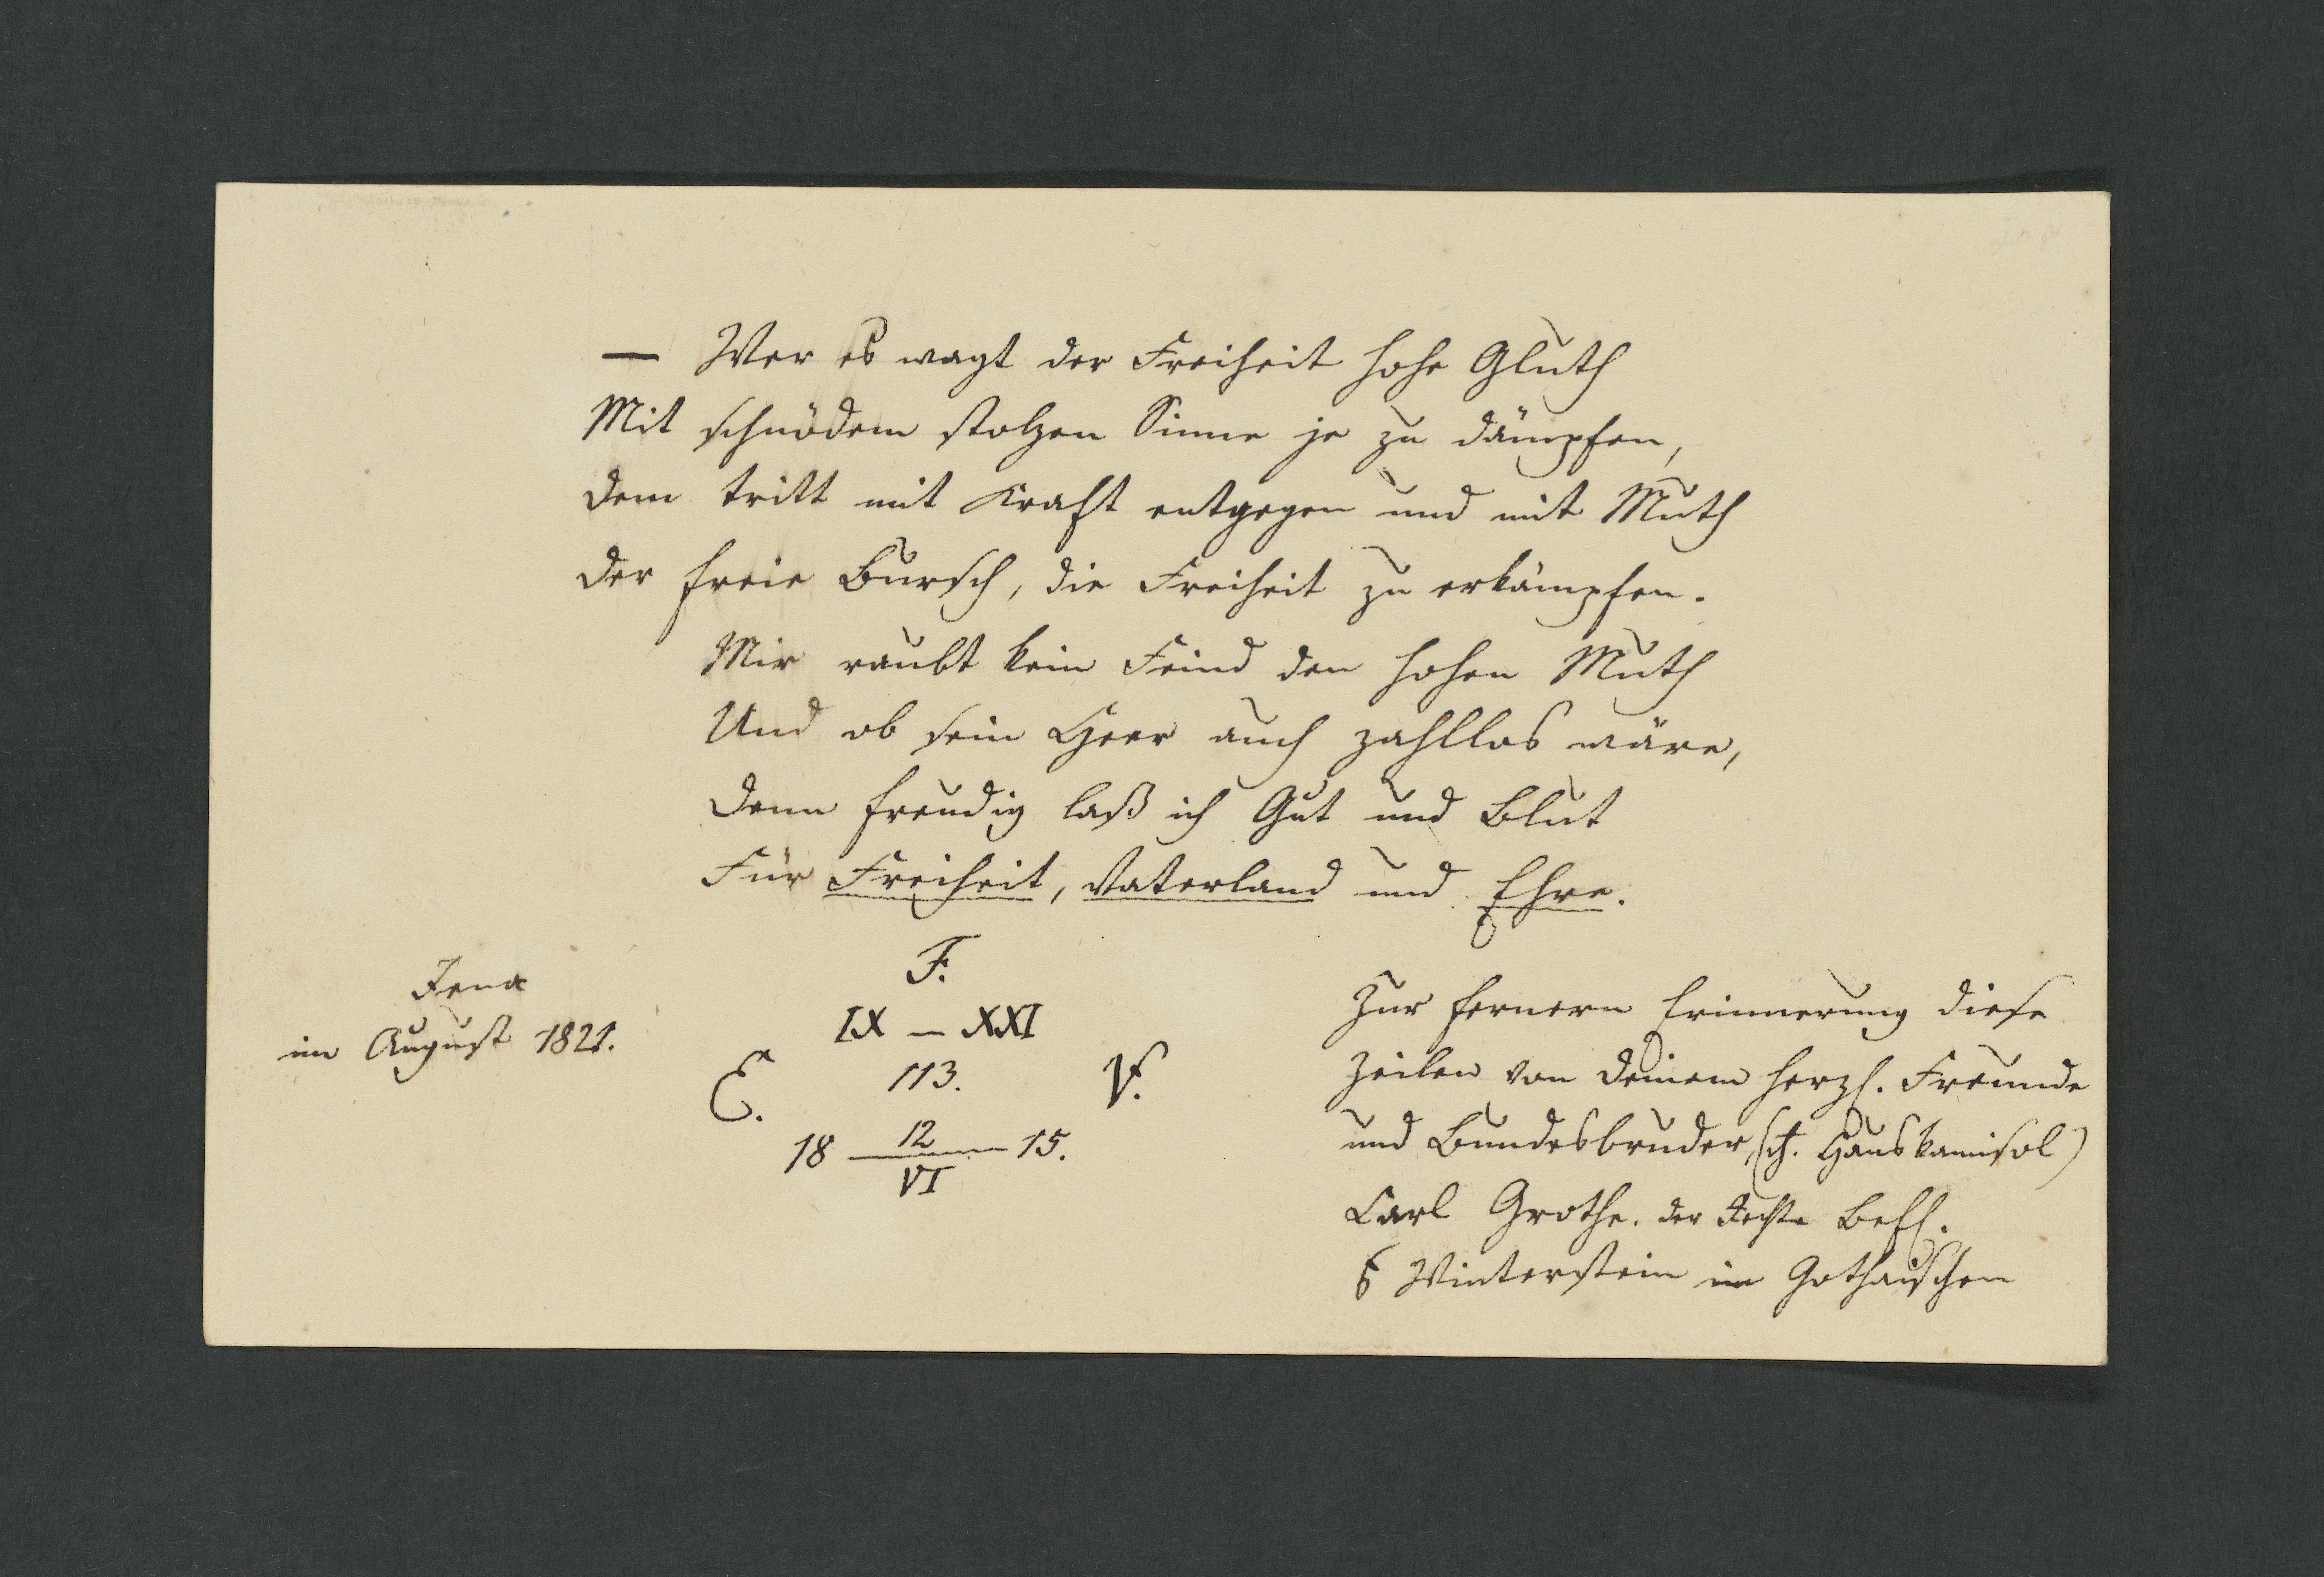 — Wer es wagt der Freiheit hohe Gluth
Mit schnödem stolzen Sinne je zu dämpfen,
dem tritt mit Kraft entgegen und mit Muth
der freie Bursch, die Freiheit zu erkämpfen.
Mir raubt kein Feind den hohen Muth
Und ob sein Heer auch zahllos wäre,
Denn freudig laß ich Gut und Blut
Für Freiheit, Vaterland und Ehre.
Jena
im August 1821.
F.
IX – XXI
E. 113. V.
18 12 15.
VI
Zur fernern Erinnerung diese
Zeilen von Deinem herzl. Freunde
und Bundesbruder, Hauskamisol)
Carl Grothe. der Rechte Befl.
Winterstein im Gothaischen